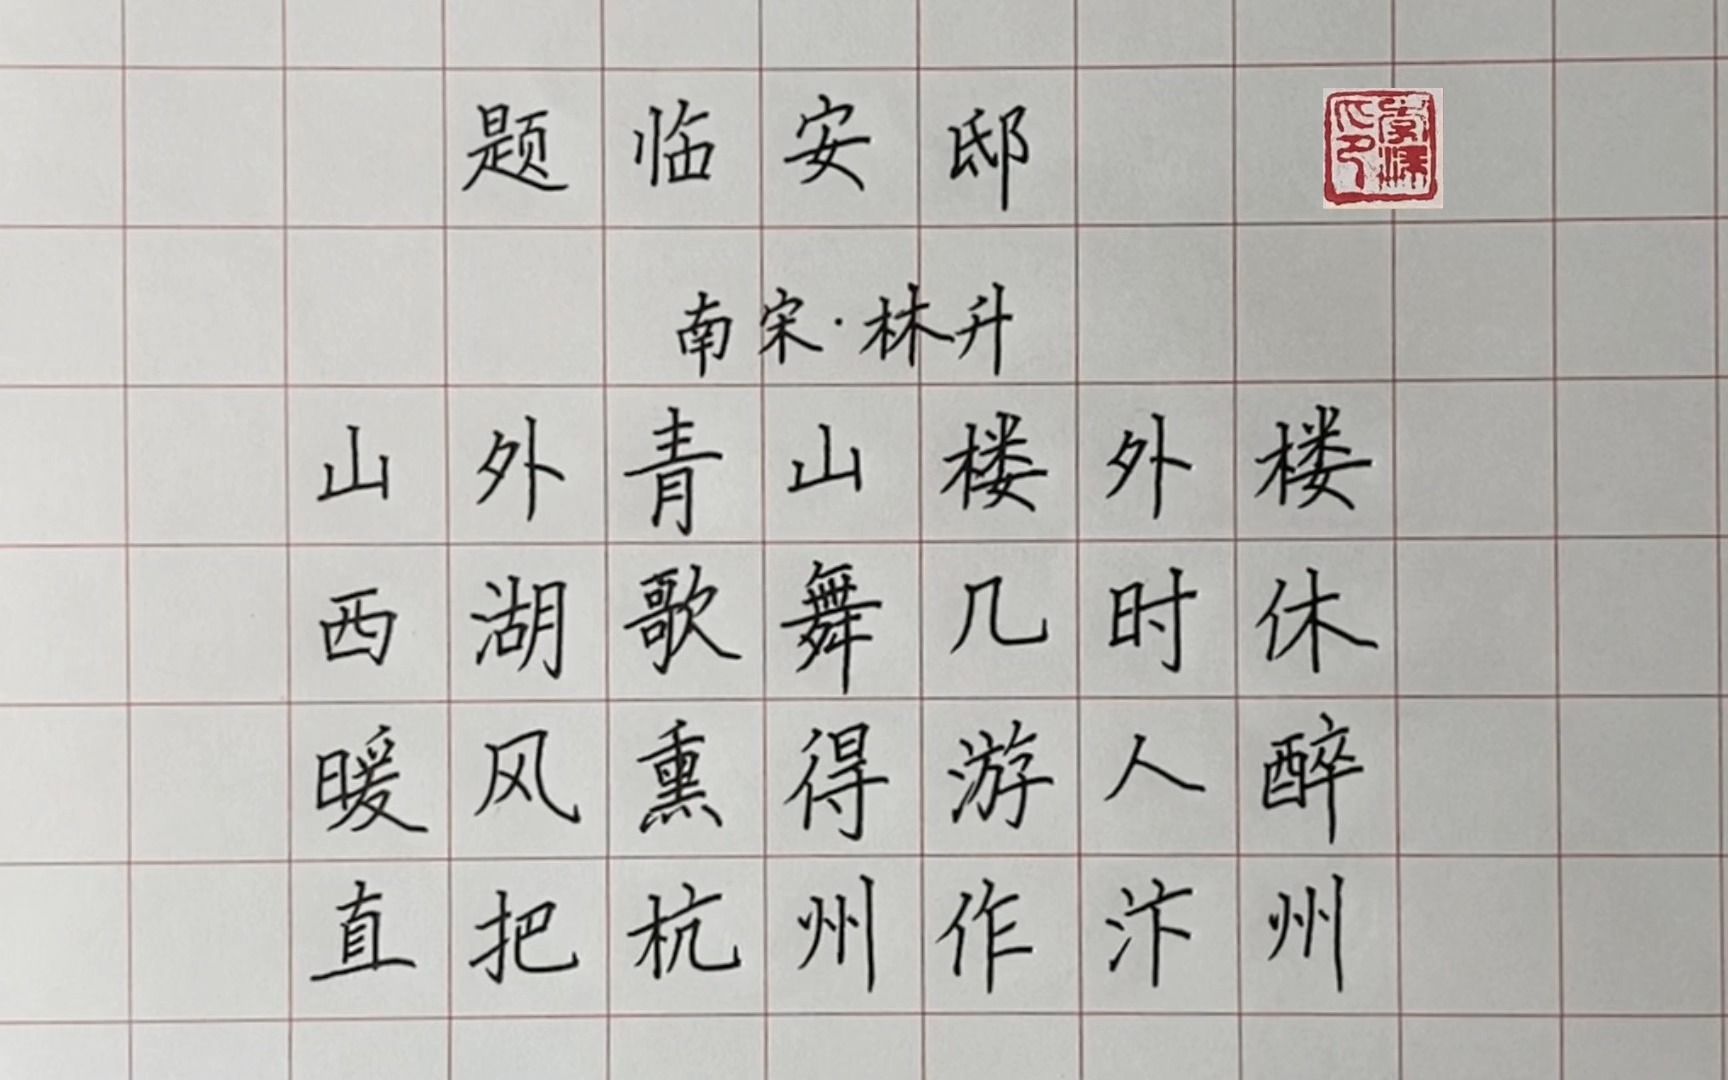 题临安邸
南宋·林升
山外青山楼外楼
西湖歌舞几时休
暖风熏得游人醉
直把杭州作汴州